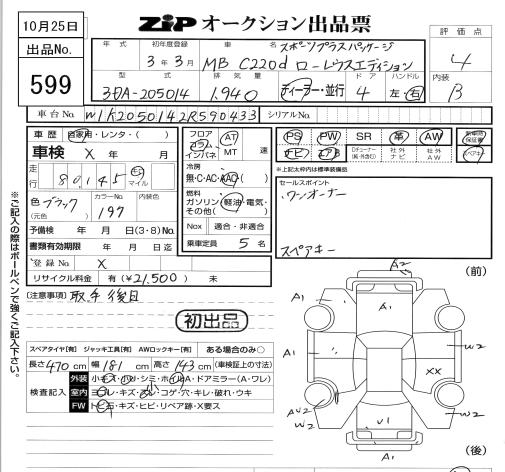 10月25日
ZIP オークション出品票
出品No. 599
評価点 4
内装 B
年式 初年度登録 車名 スポーツプラスパッケージ
3年3月 MB C220d ローレウスエディション
型式 排気量 ドア ハンドル
3DA-205014 1,940 ディーラー・並行 4 左・右
車台No. W1K2050142R590433 シリアルNo.
車歴 自家用・レンタ・( )
車検 X 年 月
走行 80,145 Km マイル
色 ブラック (元色) カラーNo. 197 内装色
予備検 年 月 日(3・8)No.
書類有効期限 年 月 日迄
登録No X
リサイクル料金 有(¥21,500) 未
フロア コラム インパネ AT MT 速
冷房 無・C・AC・AAC( )
燃料 ガソリン・軽油・電気・その他( )
Nox 適合・非適合
乗車定員 5 名
PS PW SR 革 AW 新車時保証書
ナビ 社外ナビ 社外AW スペアキー
※上記太枠内は標準装備品
セールスポイント
ワンオーナー
スペアキー
(注意事項) 取・手 後日
初出品
※ご記入の際はボールペンで強くご記入下さい。
スペアタイヤ[有] ジャッキ工具[有] AWロックキー[有] ある場合のみ○
長さ 470 cm 幅 181 cm 高さ 143 cm (車検証上の寸法)
検査記入 外装 小キズ・小凹・シミ・ホイルA・ドアミラー(A・ワレ)
室内 ヨゴレ・キズ・スレ・コゲ・穴・キレ・破れ・ウキ
FW トビ石・キズ・ヒビ・リペア跡・X要ス
(前)
A2
A1 A1
A1 W2
XX
AW2 W2
U1 W2
A1
(後)